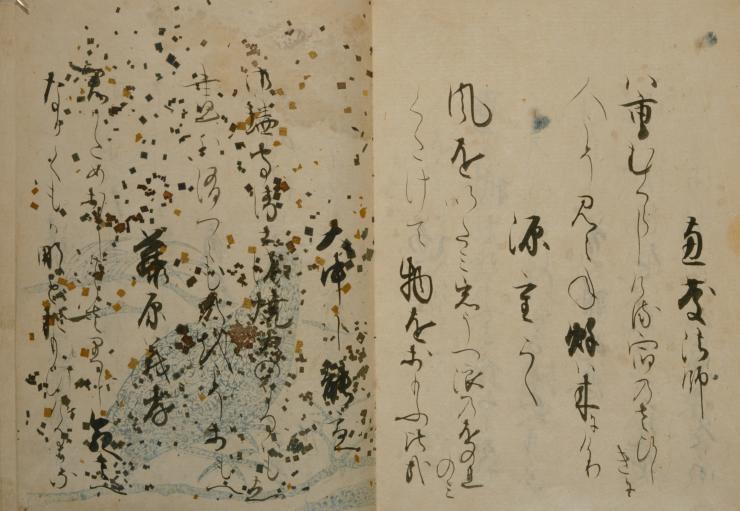 恵慶法師
八重むくらしけれる宿のさひし
きに
人こそ見えね秋は来にけり
源重之
風をいたみ岩うつ浪のをのれ
のみ
くたけて物をおもふ比哉
大中臣能宣
御垣守衛士の焼火のよるはもえ
昼は消つゝ物をこそおもへ
藤原義孝
君かためおしからさりし命さへ
なかくも